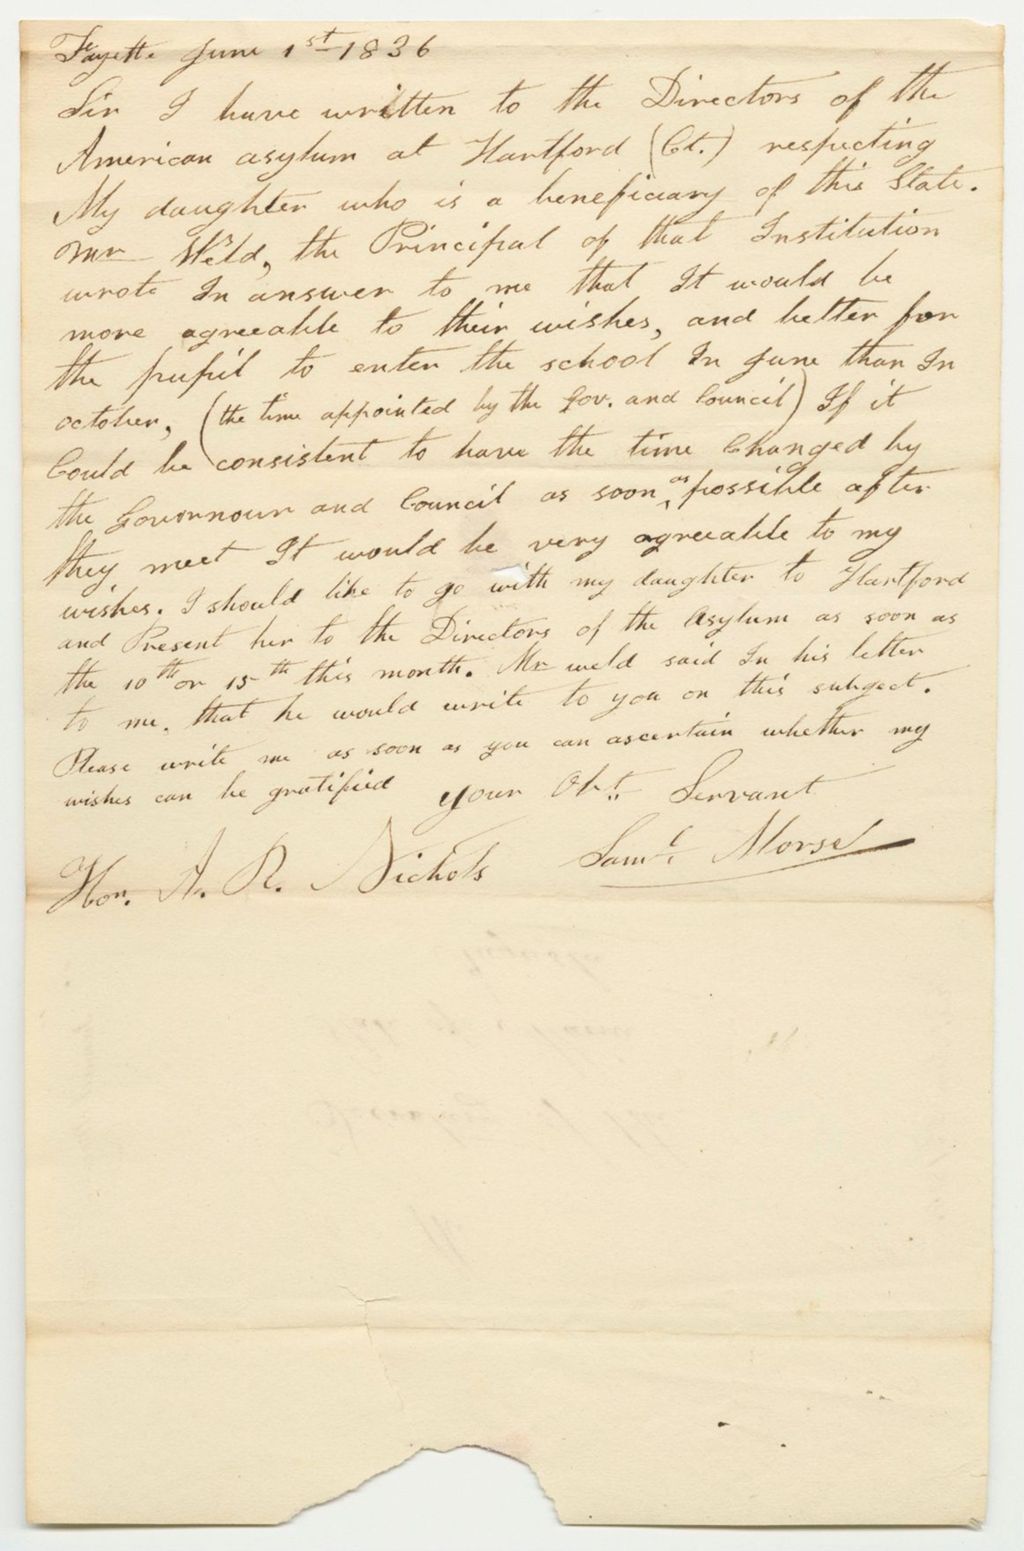 Fayette June 1st 1836
Sir I have written to the Directors of the
American asylum at Hartford (Ct.) respecting
My daughter who is a beneficiary of this State.
Mr Weld, the Principal of that Institution
wrote In answer to me that It would be
more agreeable to their wishes, and better for
the pupil to enter the school In June than In
october, (the time appointed by the Gov. and Council) If it
Could be consistent to have the time Changed by
the Governour and Council as soon as possible after
they meet It would be very agreeable to my
wishes. I should like to go with my daughter to Hartford
and Present her to the Directors of the Asylum as soon as
the 10th or 15th this month. Mr weld said In his letter
to me. that he would write to you on this subject.
Please write me as soon as you can ascertain whether my
wishes can be gratified your Obt. Servant
Saml. Morse
Hon. A. R. Nichols